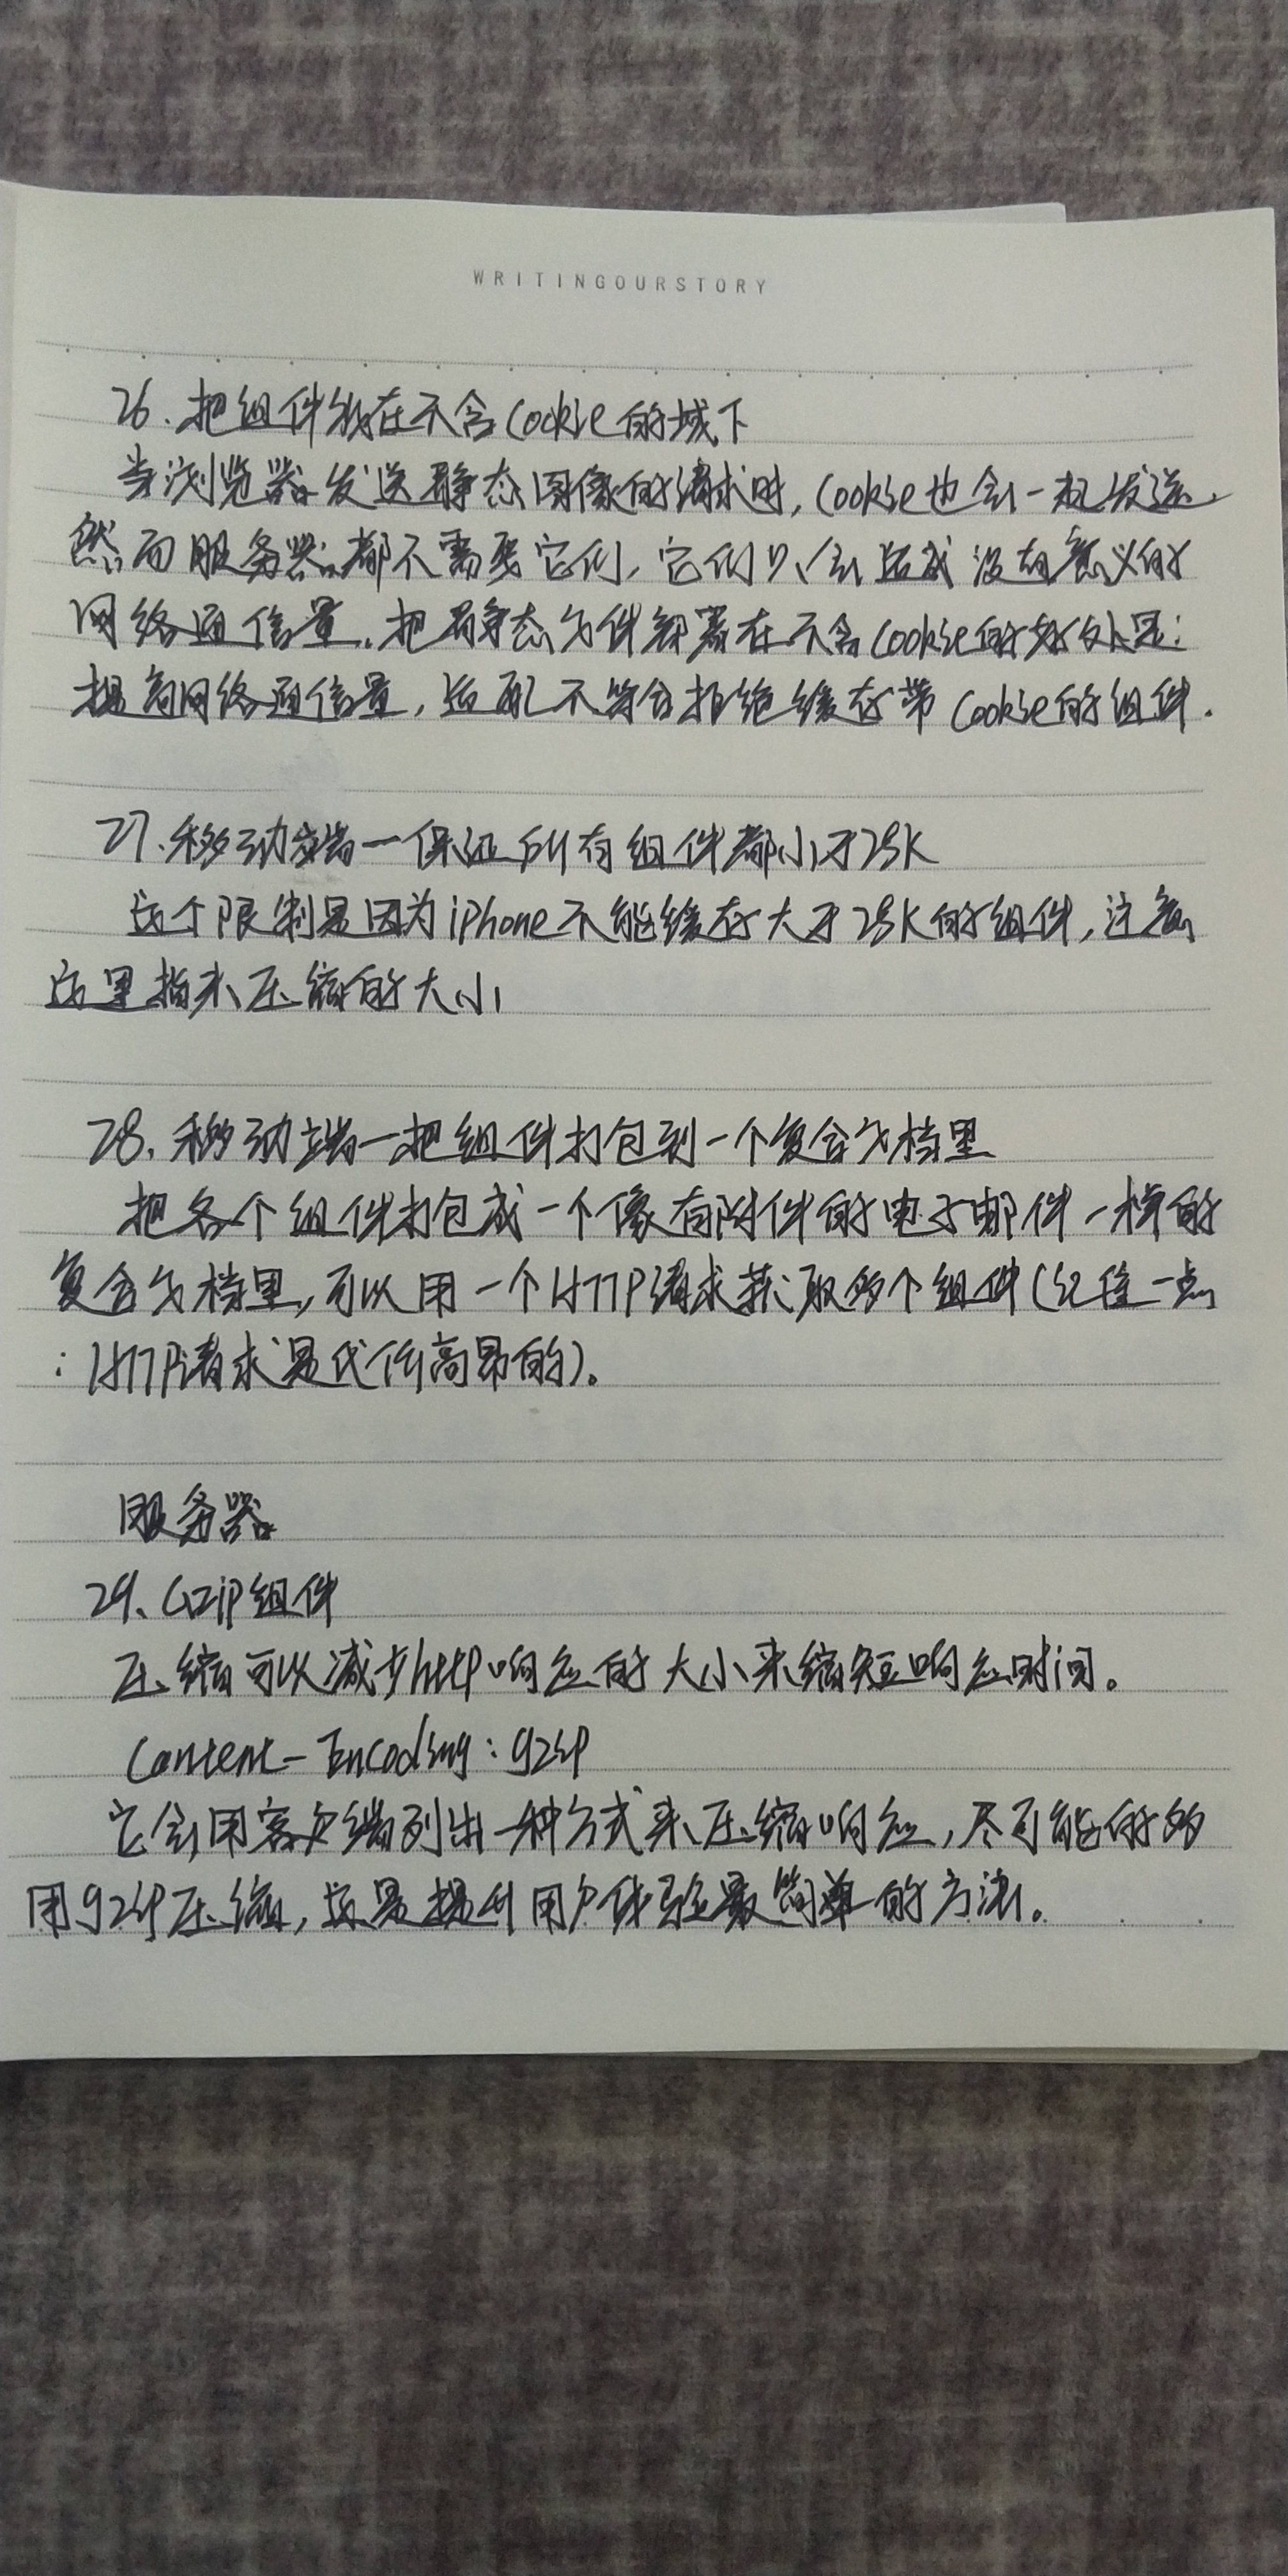 WRITINGOURSTORY
26.把组件放在不含Cookie的域下
当浏览器发送静态图像的请求时,Cookie也会一起发送,
然而服务器都不需要它们,它们只会造成没有意义的
网络通信量,把静态文件部署在不含Cookie的好处是:
提高网络通信量,适配不符合拒绝缓存带Cookie的组件.
27.移动端一保证所有组件都小于25K
这个限制是因为iPhone不能缓存大于25K的组件,注意
这里指未压缩的大小
28.移动端一把组件打包到一个复合文档里
把各个组件打包成一个像有附件的电子邮件一样的
复合文档里,可以用一个HTTP请求获取多个组件(记住一点
:HTTP请求是代价高昂的)。
服务器
29、Gzip组件
压缩可以减少http响应的大小来缩短响应时间。
Content-Encoding:gzip
它会用客户端列出一种方式来压缩响应,尽可能的多
用gzip压缩,这是提升用户体验最简单的方法。